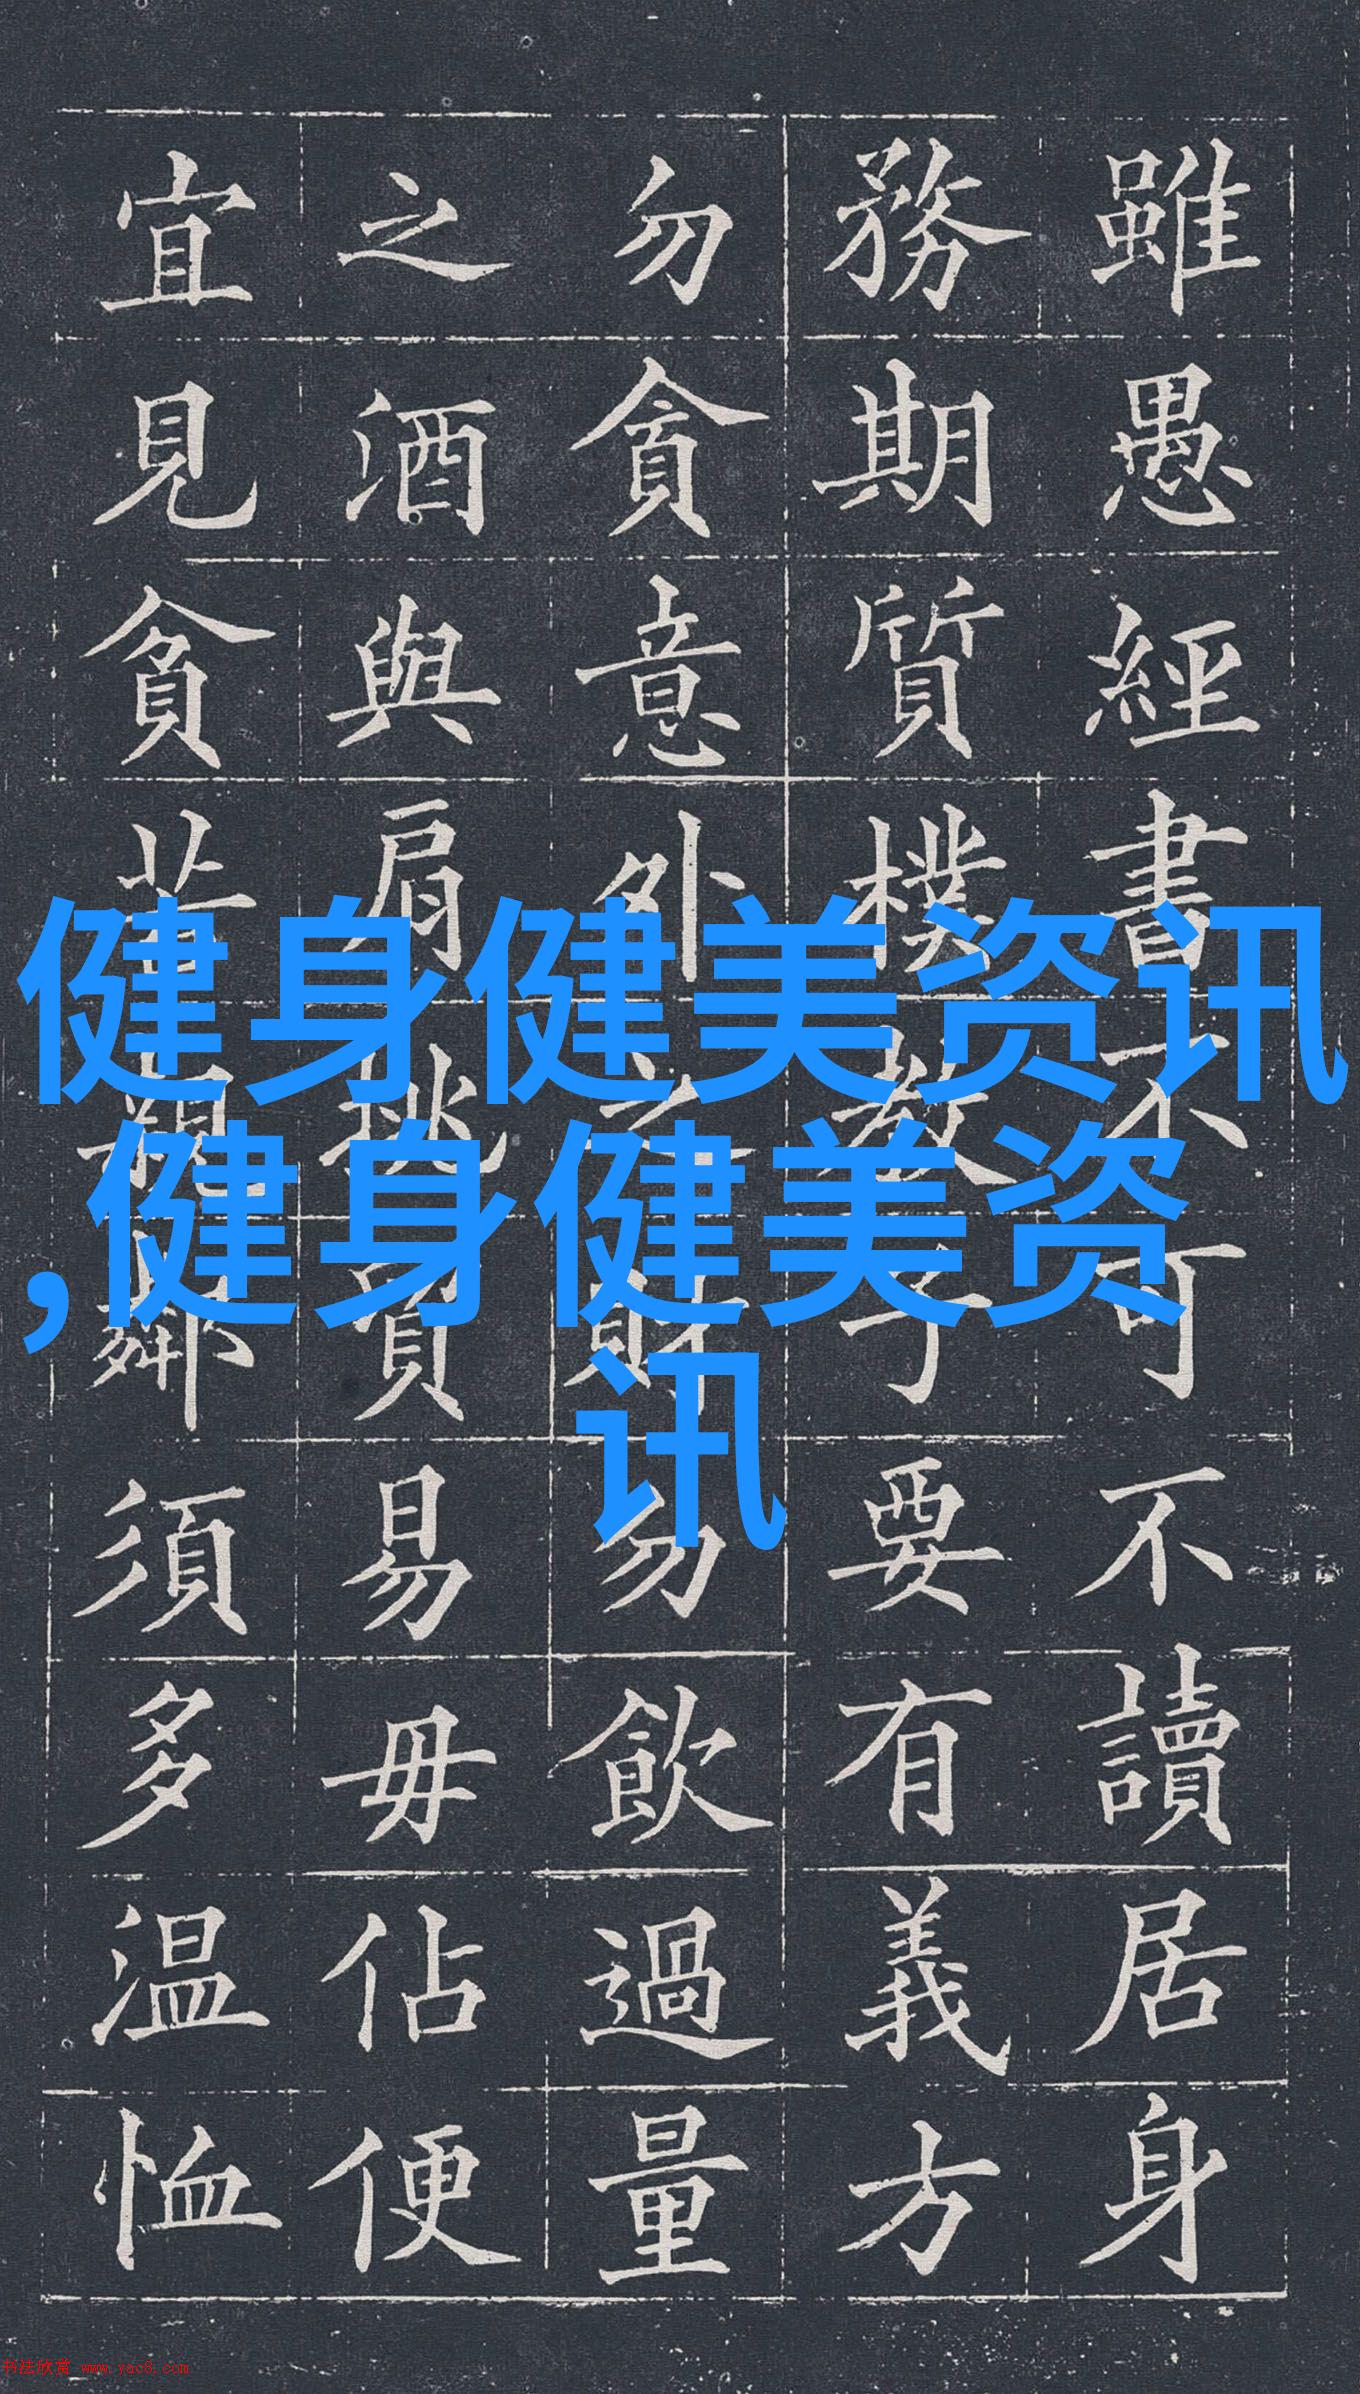 雖愚經書不可不讀居身
務期質樸教子要有義方
勿貪意外之財勿飲過量
之酒與肩挑貿易毋佔便
宜見貧苦親鄰須多温恤
健身健美资讯
,健身健美资
讯
书法欣赏 www.yac8.com